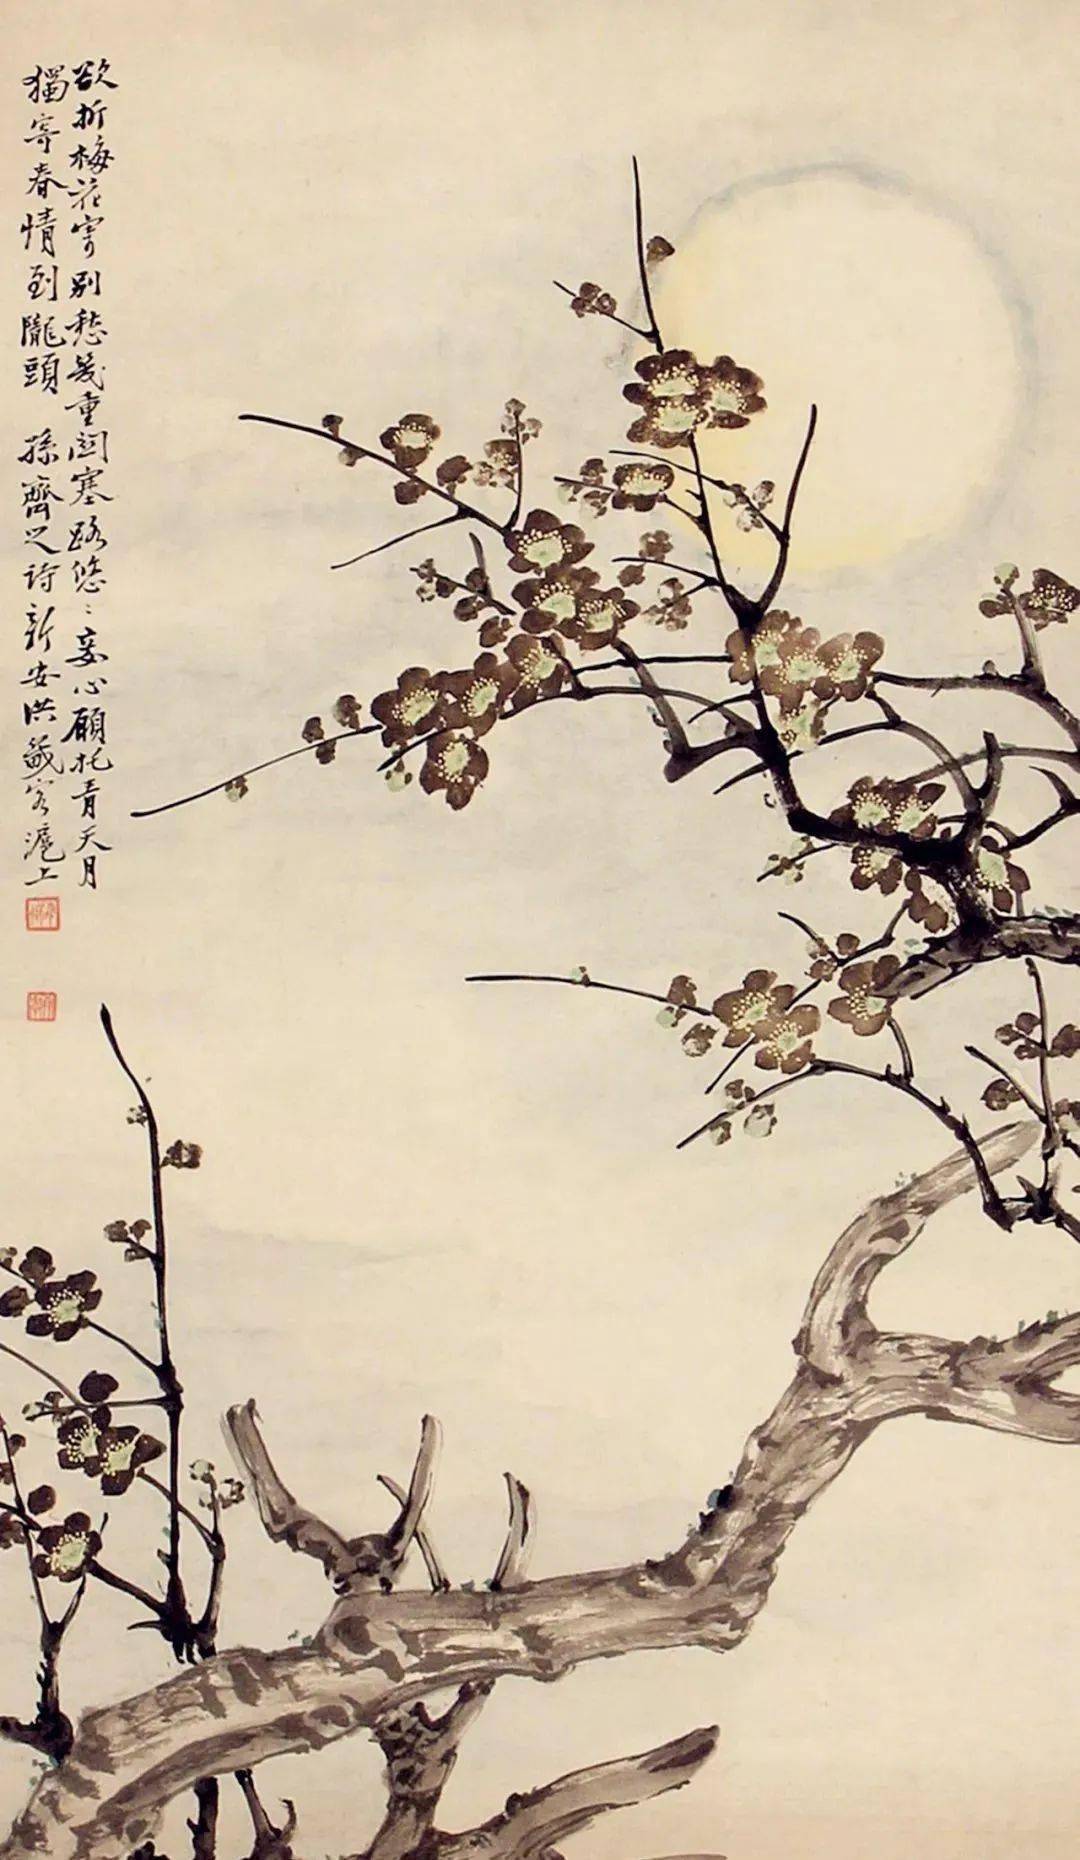 欲折梅花寄別愁幾重関塞路悠〻妾心願托青天月
獨寄春情到隴頭 孫齊之詩新安洪客滬上